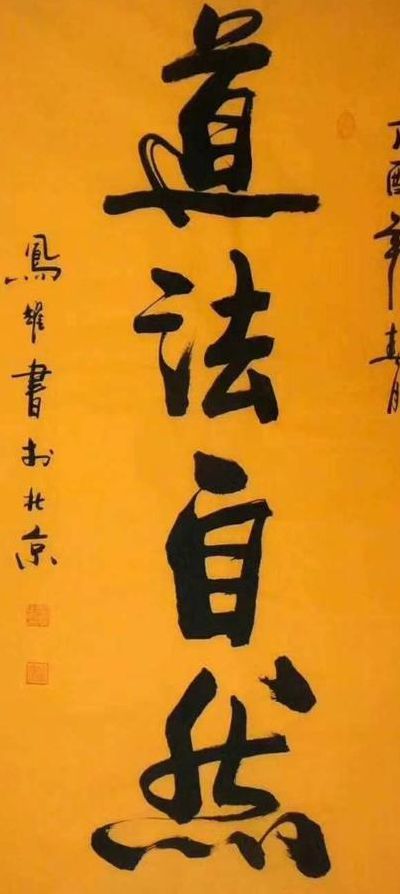 丁酉年春月
道法自然
鳳耀書於北京